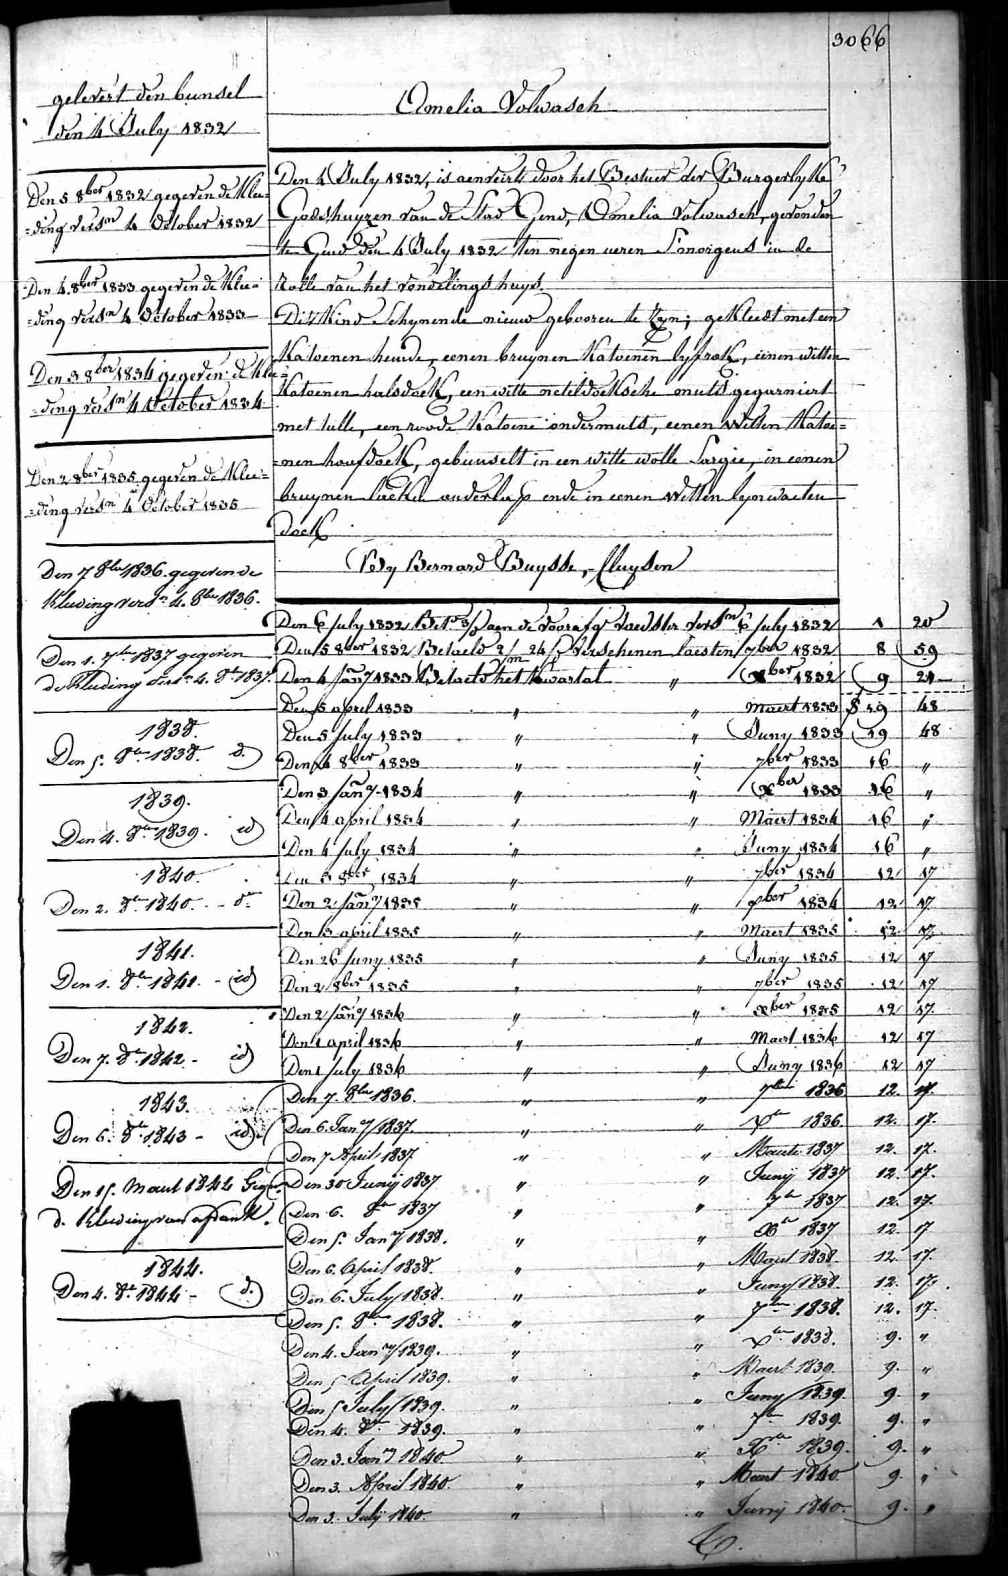 3066
gelevert den bunsel
den 4 July 1832
Omelia Volwasch
Den 5 8ber 1832 gegeven de Klee-
=ding versn 4 October 1832
Den 4 8ber 1833 gegeven de Klee-
=ding versn 4 October 1833
Den 3 8ber 1834 gegeven de Klee-
=ding versn 4 October 1834
Den 2 8ber 1835 gegeven de Klee-
=ding versn 4 October 1835
Den 7 8ber 1836. gegeven de
kleeding versn 4. 8ber 1836.
Den 1. 7ber 1837 gegeven
de kleeding versn 4. 8br 1837.
1838.
Den 5. 8br 1838. d.
1839.
Den 4. 8br 1839. id
1840.
Den 2. 8br 1840. - do
1841.
Den 1. 8br 1841. - id
1842.
Den 7. 8br 1842 - id
1843.
Den 6. 8br 1843 - id.
Den 15. Maart 1844 Gege-
d. kleeding voor afrank.
1844.
Den 4. 8br 1844 - d.
Den 4 July 1832, is aenveirt door het Bestuer der Burgerlyke
Godshuyzen van de Stad Gend, Omelia Volwasch, gevonden
te Gend den 4 July 1832 ten negen ueren S'morgens in de
Rolle van het vondelingshuys.
Dit Kind Schynende nieuw gebooren te Zyn; gekleedt met een
Katoenen hemde, eenen bruynen Katoenen lyfrok, eenen witten
Katoenen halsdoek, een witte neteldoeksche muts gegarniert
met tulle, een roode Katoene ondermuts, eenen witten Katoe=
=nen hoofdoek, gebunselt in een witte wolle Sargie, in eenen
bruynen laeken onderlap ende in eenen witten lynwaeten
doek
By Bernard Buysse, Cluysen
Den 6 July 1832 aen de voorafge voedster versn 6 July 1832 1 20
Den 5 8ber 1832 Betaeld 2/m 24/ Verschenen laesten 7ber 1832 8 59
Den 4 Jany 1833 Betaeld het kwartal " Xber 1832 9 24
Den 5 april 1833 " " Maert 1833 $ 19 48
Den 5 July 1833 " " Juny 1833 19 48
Den 4 8ber 1833 " " 7ber 1833 16 "
Den 3 Jany 1834 " " Xber 1833 16 "
Den 4 april 1834 " " Maert 1834 16 "
Den 4 July 1834 " " Juny 1834 16 "
Den 3 8ber 1834 " " 7ber 1834 12 17
Den 2 Jany 1835 " " Xber 1834 12 17
Den 3 april 1835 " " Maert 1835 12 17
Den 26 Juny 1835 " " Juny 1835 12 17
Den 2 8ber 1835 " " 7ber 1835 12 17
Den 2 Jany 1836 " " Xber 1835 12 17
Den 1 april 1836 " " Maert 1836 12 17
Den 1 July 1836 " " Juny 1836 12 17
Den 7. 8ber 1836. " " 7ber 1836 12. 17.
Den 6. Jany 1837. " " Xbr 1836. 12. 17.
Den 7 April 1837 " " Maerte 1837 12. 17.
Den 30 Junij 1837 " " Junij 1837 12. 17.
Den 6. 8br 1837 " " 7br 1837 12. 17.
Den 5. Jany 1838. " " Xbr 1837 12. 17
Den 6. April 1838. " " Maert 1838. 12. 17.
Den 6. July 1838. " " Juny 1838 12. 17.
Den 5. 8bre 1838. " " 7bre 1838. 12. 17.
Den 4. Jany 1839. " " Xbre 1838. 9. "
Den 5 April 1839. " " Maert 1839 9. "
Den 5 July 1839. " " Juny 1839. 9. "
Den 4. 8br 1839. " " 7br 1839. 9. "
Den 3. Jany 1840 " " Xbre 1839. 9. "
Den 3. April 1840. " " Maert 1840 9. "
Den 3. July 1840. " " Junij 1840. 9. "